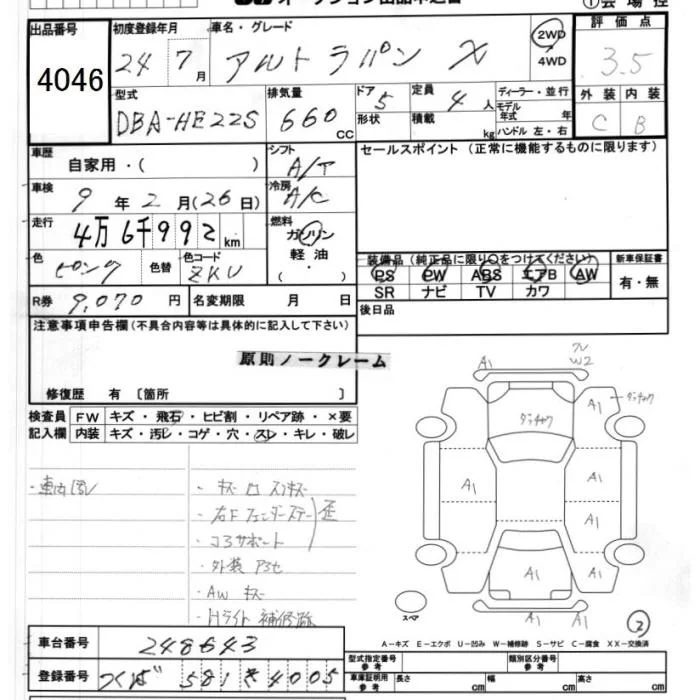 出品番号 初度登録年月 車名・グレード 2WD 評価点
4046 24 7月 アルトラパン X 4WD 3.5
型式 排気量 ドア 定員 ディーラー・並行 外装 内装
DBA-HE22S 660 CC 5 4人 モデル年式 年 C B
形状 積載 kg ハンドル 左・右
車歴 自家用・( ) シフト A/T セールスポイント (正常に機能するものに限ります)
車検 9年2月(26日) 冷房 A/C
走行 4万6千992km 燃料 ガソリン
色 ピンク 色替 色コード ZKU 軽油・( )
装備品 (純正品に限り○をつけてください) 新車保証書
PS PW ABS エアB AW 有・無
SR ナビ TV カワ
R券 9,070円 名変期限 月 日 後日品
注意事項申告欄(不具合内容等は具体的に記入して下さい)
原則ノークレーム
修復歴 有 〔箇所 〕
検査員 FW キズ・飛石・ヒビ割・リペア跡・×要
記入欄 内装 キズ・汚レ・コゲ・穴・スレ・キレ・破レ
・右Fフェンダーステー 歪
・コアサポート
・外装
・AW キズ
・Hライト 補修跡
A1 W2
A1
ダッチャク
A1 A1
A1
A1
A1 A1
スペア
2
A-キズ E-エクボ U-凹み W-補修跡 S-サビ C-腐食 XX-交換済
車台番号 248643
型式指定番号 参考 類別区分番号 参考
登録番号 つくば 581 き 4005
車庫証明用 参考 長さ cm 幅 cm 高さ cm